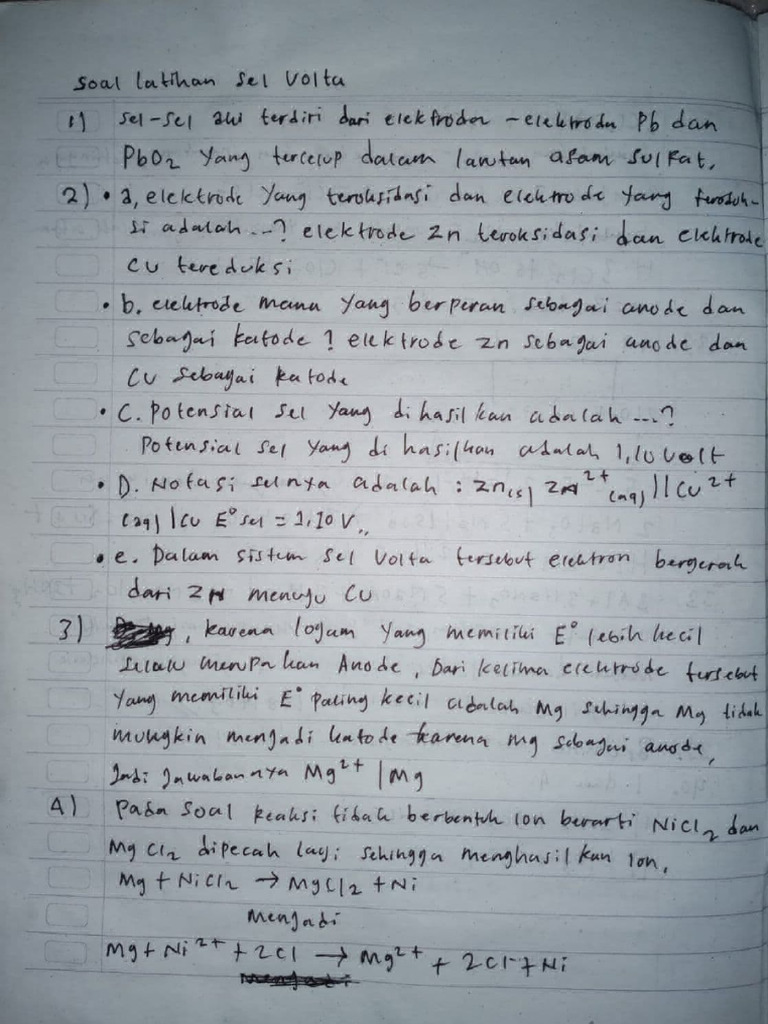 Soal latihan Sel Volta
1) Sel-sel aki terdiri dari elektroda - elektroda Pb dan
PbO2 Yang tercelup dalam larutan asam Sulfat,
2) • a, elektrode Yang teroksidasi dan elektrode Yang tereduk-
si adalah...? elektrode Zn teroksidasi dan elektrode
Cu tereduksi
• b. elektrode mana Yang berperan sebagai anode dan
sebagai katode ? elektrode Zn sebagai anode dan
Cu sebagai katode
• C. Potensial sel Yang dihasilkan adalah ...?
Potensial sel Yang dihasilkan adalah 1,10 Volt
• D. Notasi selnya adalah : Zn(s) | Zn2+ (aq) || Cu2+
(aq) | Cu E° sel = 1,10 V,,
• e. Dalam sistem sel Volta tersebut elektron bergerak
dari Zn menuju Cu
3) , karena logam Yang memiliki E° lebih kecil
selalu merupakan Anode, Dari kelima elektrode tersebut
Yang memiliki E° Paling kecil adalah Mg sehingga Mg tidak
mungkin menjadi katode karena mg sebagai anode,
Jadi Jawabannya Mg2+ | Mg
4) Pada Soal Reaksi tidak berbentuk Ion berarti NiCl2 dan
MgCl2 dipecah lagi sehingga menghasilkan Ion,
Mg + NiCl2 → MgCl2 + Ni
Menjadi
Mg + Ni2+ + 2Cl → Mg2+ + 2Cl- + Ni